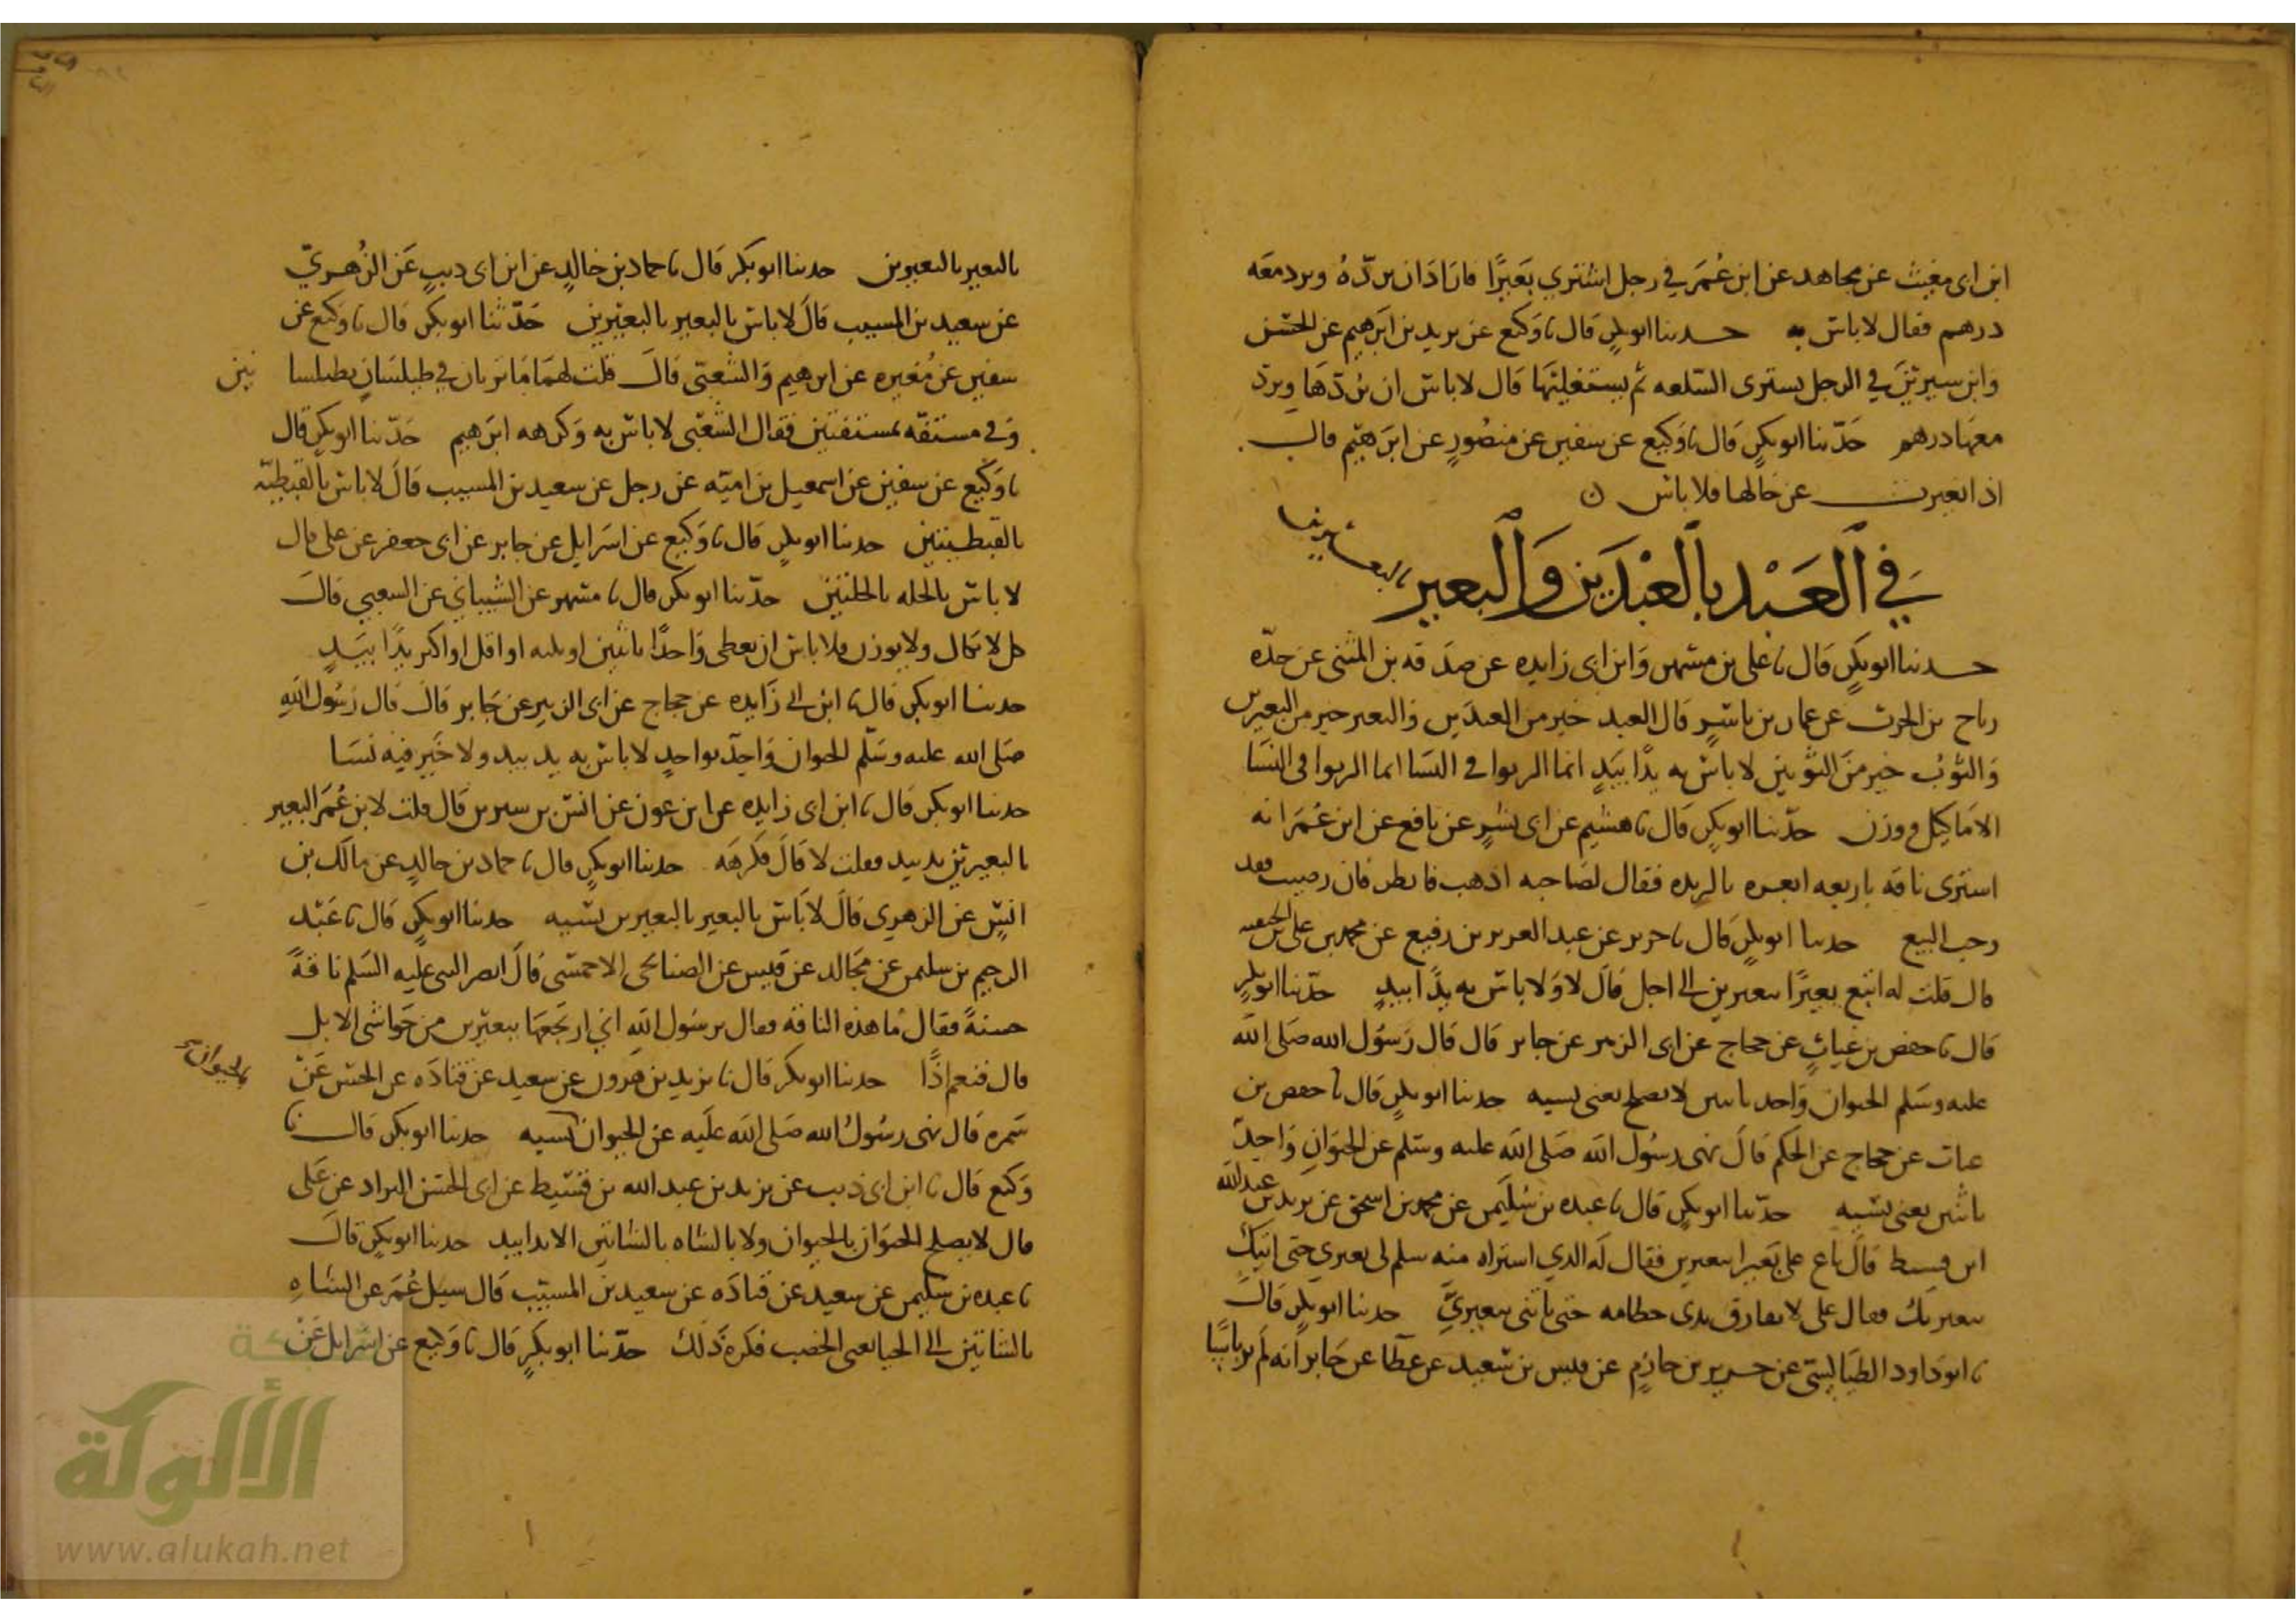 ابن ابي مغيث عن مجاهد عن ابن عُمَر في رجل اشتري بَعيرًا فاراد ان يردّهُ ويرد معَه
درهم فقال لا باس به حدثنا ابو بكر قال نا وَكيع عن يزيد بن ابرهيم عن الحسَن
وابن سيرينَ في الرجل يشترى السّلعه ثم يستغليهَا قال لا باس ان يردّهَا ويردّ
معهَا درهم حَدّثنا ابو بكرٍ قال نا وَكيع عن سفين عن منصُورٍ عن ابرَهيم قال
اذا تغيرت عن حالها فلا باس ن
في العَبْد بالعَبْدَين وَالبَعير بالبعيرين
حدثنا ابو بكرٍ قال نا علي بن مسهر وَابن ابي زايده عن صدَقه بن المثنى عن جدّه
رياح بن الحرث عن عمار بن ياسرٍ قال العبد خير من العبدَين وَالبعير خير من البعيرين
وَالثوبُ خير منَ الثوبين لا باس به يدًا بيَدٍ انما الربوا في النسَا انما الربوا في النسَا
الا مَا كِيل ووزن حدّثنا ابو بكرٍ قال نا هشيم عن ابي بشرٍ عن نافع عن ابن عُمَر انه
اشترى ناقه باربعه ابعره بالربذه فقال لصَاحبه اذهب فانظر فان رضيت فقد
وجب البيع حدثنا ابو بكرٍ قال نا جرير عن عبد العزيز بن رفيع عن محمد بن علي بن الحنفيه
قال قلت له ابيع بعيرًا ببعيرين الى اجل قال لا وَلا باس به يدًا بيدٍ حدّثنا ابو بكرٍ
قال نا حفص بن غياثٍ عن حجاج عن ابي الزبير عن جابر قال قال رَسُول الله صَلى الله
عليه وسَلم الحيوان وَاحد باثنين لا يصلح يعنى نسيه حدثنا ابو بكرٍ قال نا حفص بن
غياث عن حجاج عن الحَكم قالَ نهى رسُول الله صَلى الله عليه وسَلم عن الحيوَانِ وَاحِدٌ
باثنين يعنى نسَيه حدّثنا ابو بكرٍ قال نا عبده بن سُليَمن عن محمد بن اسحق عن يزيد بن عبد الله
ابن قسيط قالَ باع علي بَعيرا ببعيرين فقال له الذي اشتراه منه سلم لي بعيري حتى اتيكَ
ببعيريك فقال علي لا تفارق يدى خطامه حتى تاتى ببعيريَّ حدثنا ابو بكرٍ قالَ
نا ابو دَاود الطيَالسي عن جرير بن حازمٍ عن قيس بن سَعيد عن عطَا عن جَابر انه لم ير باسًا
بالبعير بالبعيرين حدثنا ابو بَكر قال نا حماد بن خالدٍ عن ابن ابي ذيبٍ عَن الزُهريّ
عن سعيد بن المسيب قالَ لا باس بالبعير بالبعيرين حَدّثنا ابو بكرٍ قال نا وَكيع عن
سفين عن مُغيره عن ابرهيم وَالشعبي قالَ قلت لهمَا مَا تريان في طيلسَانٍ بطيلسا نين
وَفي مستقه بمستقتين فقال الشعبى لا باس به وكرهه ابرَهيم حَدّثنا ابو بكرٍ قال
نا وَكيع عن سفين عن اسمعيل بن اميّه عن رجل عن سعيد بن المسيب قالَ لا باس بالقبطيّه
بالقبطيتين حدثنا ابو بكرٍ قال نا وَكيع عن اسرَايل عن جابر عن ابي جعفر عن علي قال
لا باس بالحله بالحلتين حدّثنا ابو بكر قال نا مسهر عن الشيباني عن الشعبي قالَ
كل لا يكال ولا يوزن فلا باس ان يعطى وَاحدًا باثنين او بثلثه او اقل او اكثر يدًا بيَدٍ
حدثنا ابو بكر قال نا ابن ابي زَايده عن حجاج عن ابي الزبير عن جَابر قالَ قال رَسُول الله
صَلى الله عليه وسَلّم الحيوان وَاحِد بواحدٍ لا باس به يد بيد ولا خَير فيه نسَا
حدثنا ابو بكر قال نا ابن ابى زايده عن ابن عون عن انس بن سيرين قال قلت لابن عُمَر البعير
بالبعيرين يد بيد فقلت لا قالَ فكرهَه حدثنا ابو بكرٍ قال نا حماد بن خالدٍ عن مالك بن
انسٍ عن الزهري قالَ لا بَاس بالبعير بالبعيرين نسَيه حدثنا ابو بكرٍ قال نا عَبْد
الرحيم بن سليمن عن مجَالد عن قيس عن الصنابحى الاحمسى قالَ ابصر النبى عليه السَلم ناقةً
حسنةً فقال مَا هذه الناقه فقال يرسُول الله اني ارتجعهَا ببعيرين من حَواشى الابل
قال فنعم اذًا حدثنا ابو بكر قال نا يزيد بن هرون عن سعيد عن قتادَه عن الحسَن عَنْ
سَمره قال نهى رسُولُ الله صَلى الله علَيه عن الحيوان نسيه بالحيوان حدثنا ابو بكرٍ قال نا
وَكيع قال نا ابن ابي ذيب عن يزيد بن عبد الله بن قسَيط عن ابي الحسَن البراد عن عَلى
قال لا يصلح الحيوَان بالحيوان ولا بالشاه بالشاتين الا يدا بيد حدثنا ابو بكرٍ قالَ
نا عبده بن سُليمن عن سعيد عن قتادَه عن سعيد بن المسيّب قال سيل عُمَر عن الشاهِ
بالشاتين الى الحيا يعنى الخصب فكره ذَلك حدّثنا ابو بكرٍ قال نا وَكيع عن اسرايل عَنْ
شبكة
الألوكة
www.alukah.net